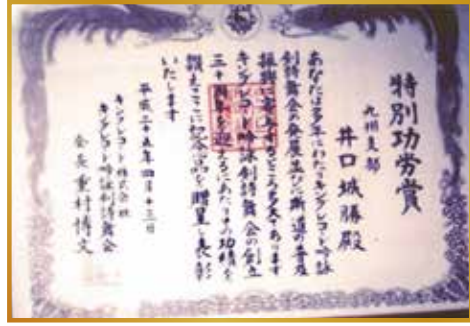 特別功労賞
九州支部
井口城勝殿
あなたは多年にわたりキングレコード吟詠
剣詩舞会の発展並びに斯道の普及
振興に寄与するところ多大であります
キングレコード吟詠剣詩舞会の創立
三十周年を迎えるにあたりその功績を
讃えここに記念品を贈呈し表彰
いたします
平成二十五年四月十三日
キングレコード株式会社
キングレコード吟詠剣詩舞会
会長 重村博文